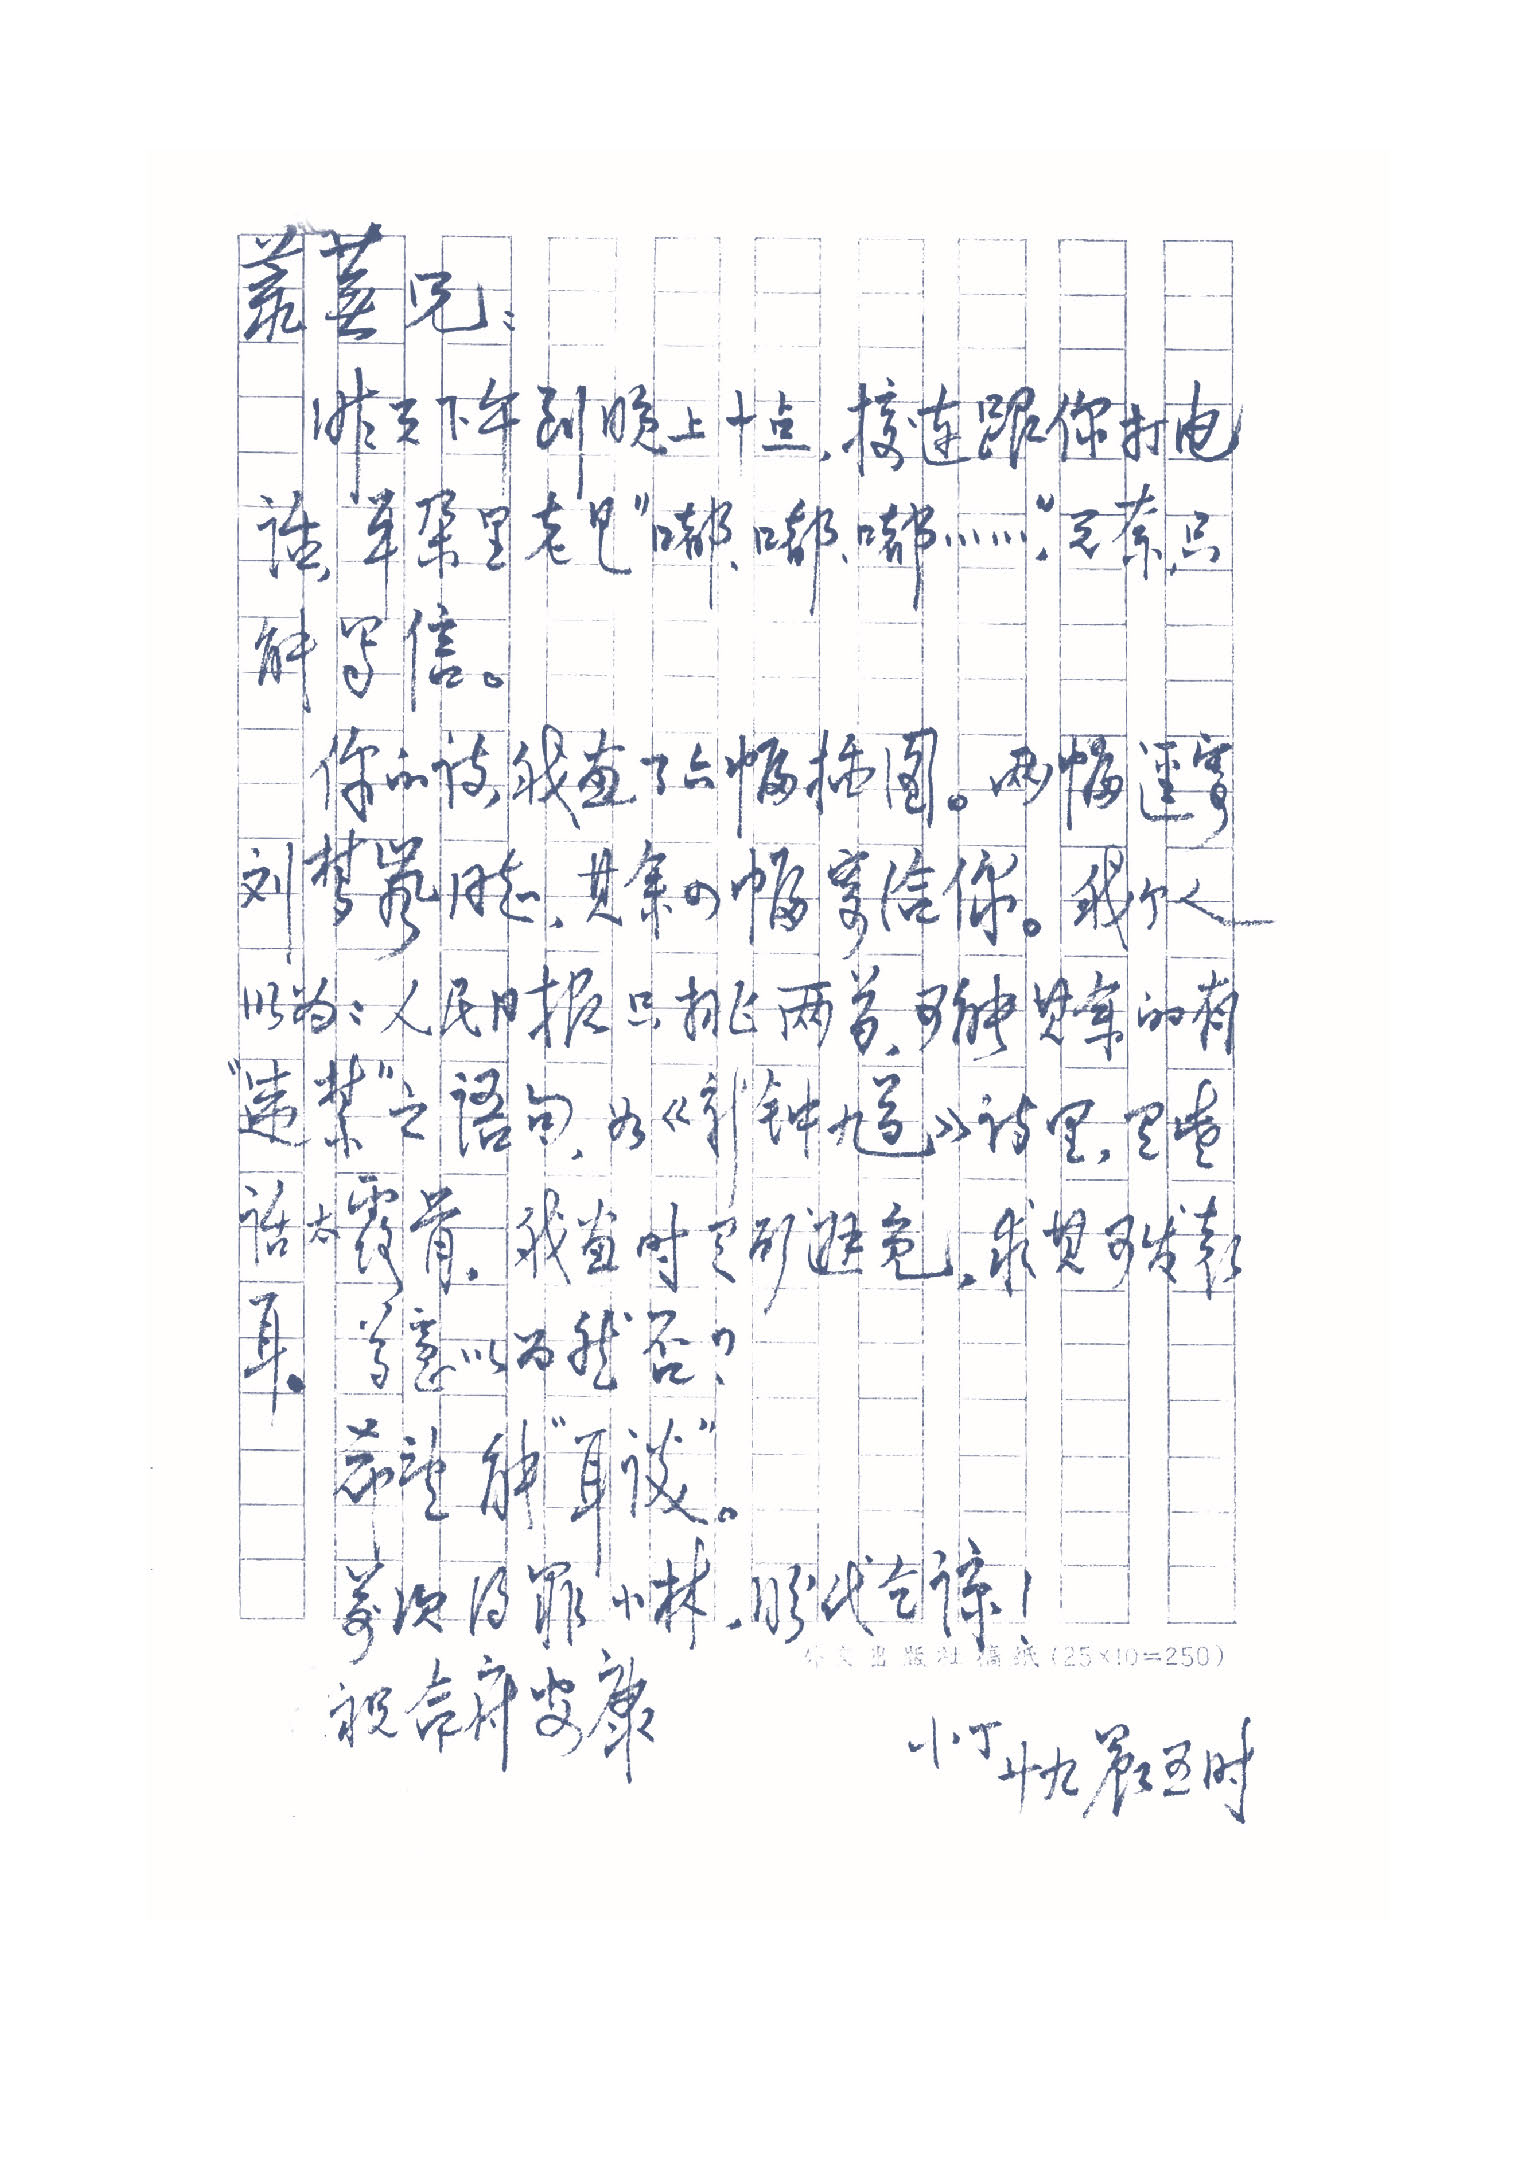 丛芜兄：
昨天下午到晚上十点，接连跟你打电
话，耳朵里老是“嘟、嘟、嘟……”，无奈，只
能写信。
你的诗，我画了六幅插图。两幅迳寄
刘梦岚同志，其余四幅寄给你。我个人
以为：人民日报只挑两首，可能其余的有
“违禁”之语句，如《新钟九馗》诗里，有些
话太露骨，我画时尽可避免，求其可发表
耳。 尊意以为然否？
希望能“耳谈”。
前次得罪小林，盼代乞谅！
祝合府安康
小丁 廿九晨五时
华文出版社稿纸(25×10=250)